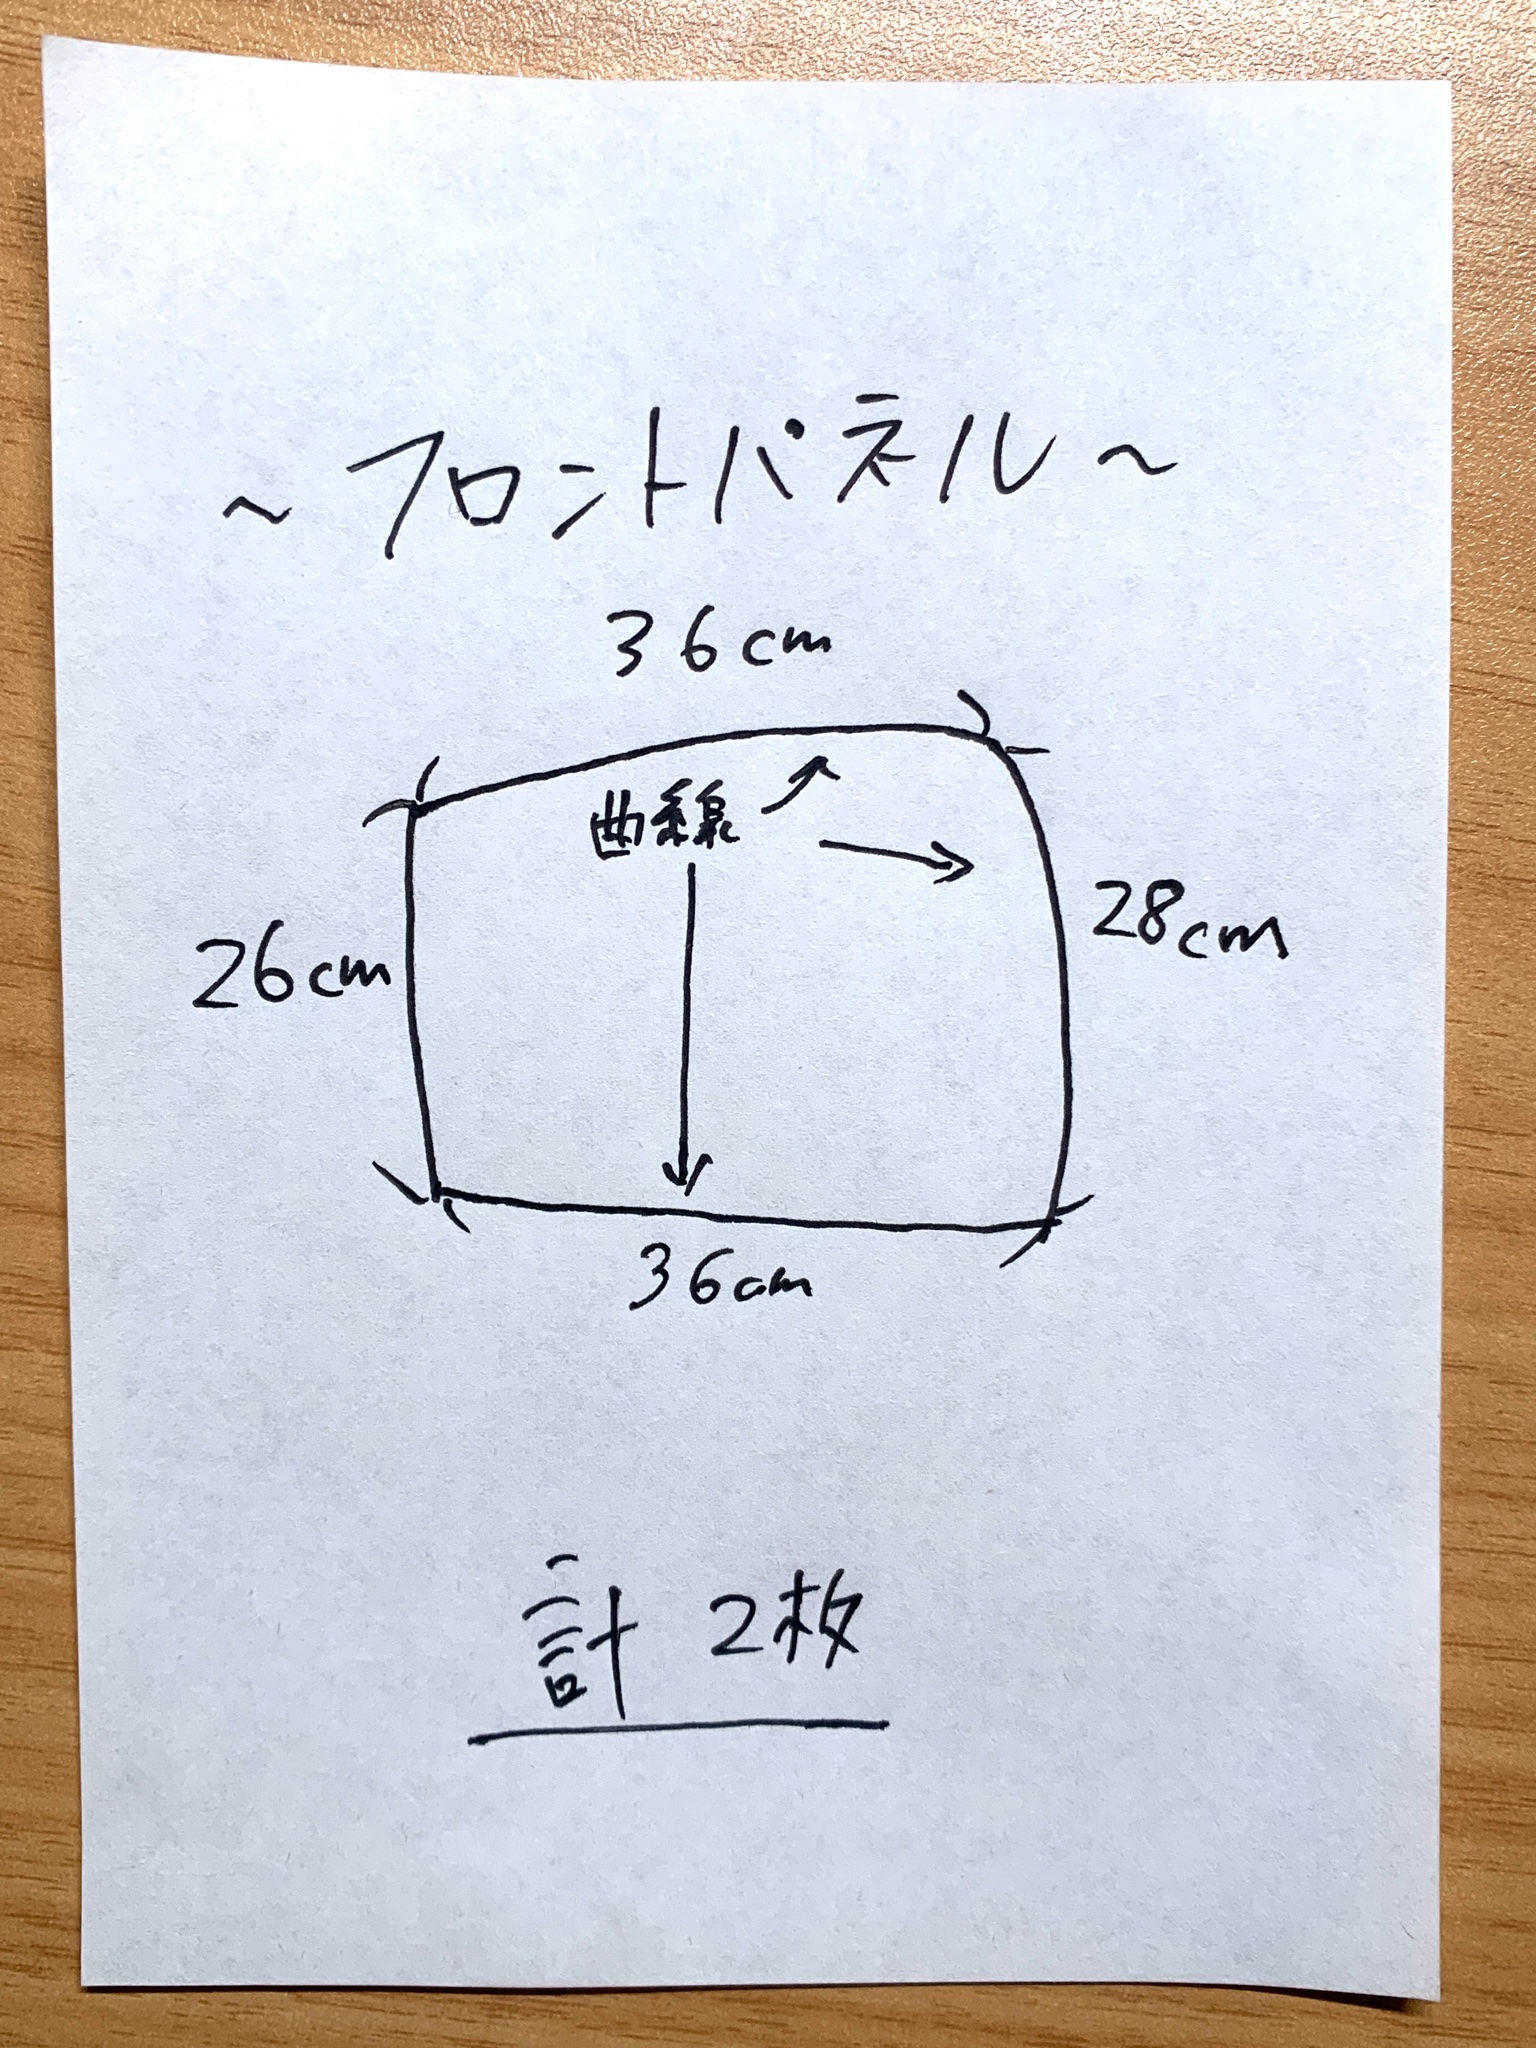 ~フロントパネル~
36cm
曲線
26cm
28cm
36cm
計 2枚